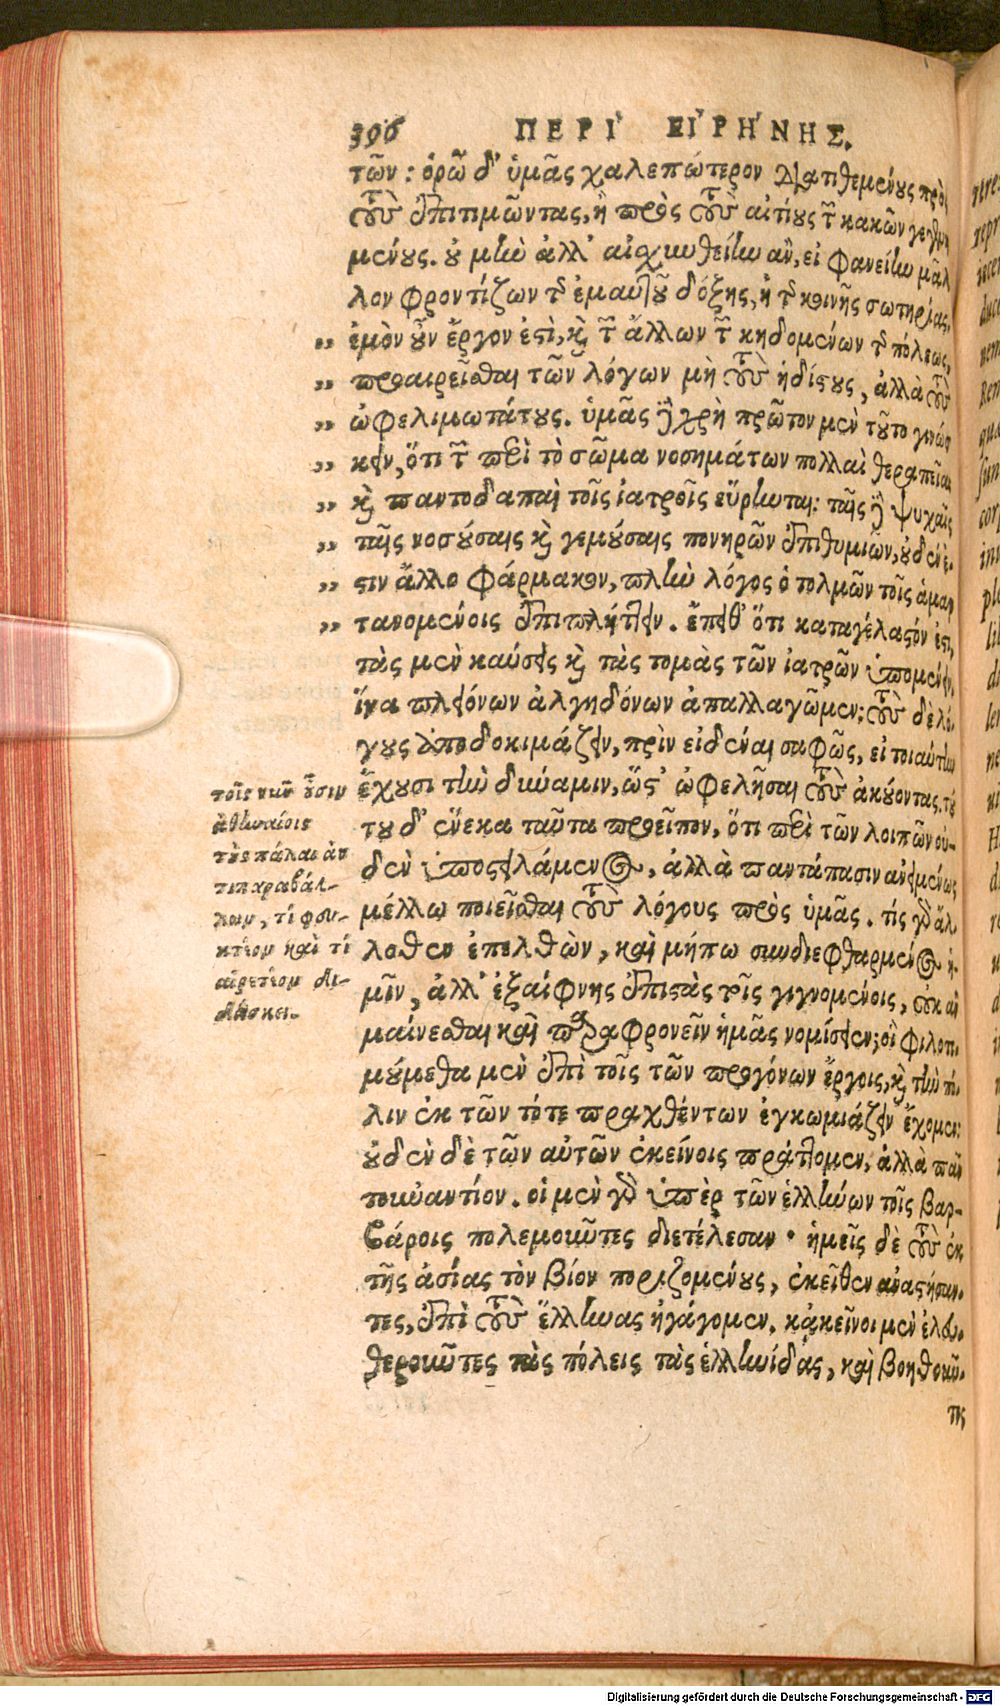 396 ΠΕΡΙ ΕΙΡΗΝΗΣ.
τῶν: ὁρῶ δ' ὑμᾶς χαλεπώτερον διατιθεμένους πρὸς
τοὺς ἐπιτιμῶντας, ἢ πρὸς τοὺς αἰτίους τῶν κακῶν γεγενη
μένους. οὐ μὴν ἀλλ' αἰσχυνθείην ἂν, εἰ φανείην μᾶλ
λον φροντίζων τῆς ἐμαυτοῦ δόξης, ἢ τῆς κοινῆς σωτηρίας.
„ ἐμὸν οὖν ἔργον ἐστὶ, καὶ τῶν ἄλλων τῶν κηδομένων τῆς πόλεως,
„ προαιρεῖσθαι τῶν λόγων μὴ τοὺς ἡδίστους, ἀλλὰ τοὺς
„ ὠφελιμωτάτους. ὑμᾶς δὲ χρὴ πρῶτον μὲν τοῦτο γινώσ
„ κειν, ὅτι τῶν περὶ τὸ σῶμα νοσημάτων πολλαὶ θεραπεῖαι
„ καὶ παντοδαπαὶ τοῖς ἰατροῖς εὕρηνται: ταῖς δὲ ψυχαῖς
„ ταῖς νοσούσαις καὶ γεμούσαις πονηρῶν ἐπιθυμιῶν, οὐδέν ἐ-
„ στιν ἄλλο φάρμακον, πλὴν λόγος ὁ τολμῶν τοῖς ἁμαρ
„ τανομένοις ἐπιπλήττειν. ἔπειθ' ὅτι καταγέλαστόν ἐστι,
τὰς μὲν καύσεις καὶ τὰς τομὰς τῶν ἰατρῶν ὑπομένειν,
ἵνα πλειόνων ἀλγηδόνων ἀπαλλαγῶμεν: τοὺς δὲ λό-
γους ἀποδοκιμάζειν, πρὶν εἰδέναι σαφῶς, εἰ τοιαύτην
ἔχουσι τὴν δύναμιν, ὥστ' ὠφελῆσαι τοὺς ἀκούοντας. τού
του δ' ἕνεκα ταῦτα προεῖπον, ὅτι περὶ τῶν λοιπῶν οὐ-
δὲν ὑποστειλάμενος, ἀλλὰ παντάπασιν ἀνειμένως
μέλλω ποιεῖσθαι τοὺς λόγους πρὸς ὑμᾶς. τίς γὰρ ἄλ
λοθεν ἐπελθὼν, καὶ μήπω συνδιεφθαρμένος ἡ-
μῖν, ἀλλ' ἐξαίφνης ἐπιστὰς τοῖς γιγνομένοις, οὐκ ἂν
μαίνεσθαι καὶ παραφρονεῖν ἡμᾶς νομίσειεν; οἳ φιλοτι-
μούμεθα μὲν ἐπὶ τοῖς τῶν προγόνων ἔργοις, καὶ τὴν πό-
λιν ἐκ τῶν τότε πραχθέντων ἐγκωμιάζειν ἔχομεν:
οὐδὲν δὲ τῶν αὐτῶν ἐκείνοις πράττομεν, ἀλλὰ πᾶν
τοὐναντίον. οἱ μὲν γὰρ ὑπὲρ τῶν ἑλλήνων τοῖς βαρ-
βάροις πολεμοῦντες διετέλεσαν · ἡμεῖς δὲ τοὺς ἐκ
τῆς ἀσίας τὸν βίον ποριζομένους, ἐκεῖθεν ἀναστήσαν-
τες, ἐπὶ τοὺς ἕλληνας ἠγάγομεν. κἀκεῖνοι μὲν ἐλευ-
θεροῦντες τὰς πόλεις τὰς ἑλληνίδας, καὶ βοηθοῦν-
τες
τοῖς νῦν οὖσιν
ἀθηναίοις
τοὺς πάλαι ἀν
τιπαραβάλ-
λων, τί φευ-
κτέον καὶ τί
αἱρετέον δι-
δάσκει.
Digitalisierung gefördert durch die Deutsche Forschungsgemeinschaft - DFG